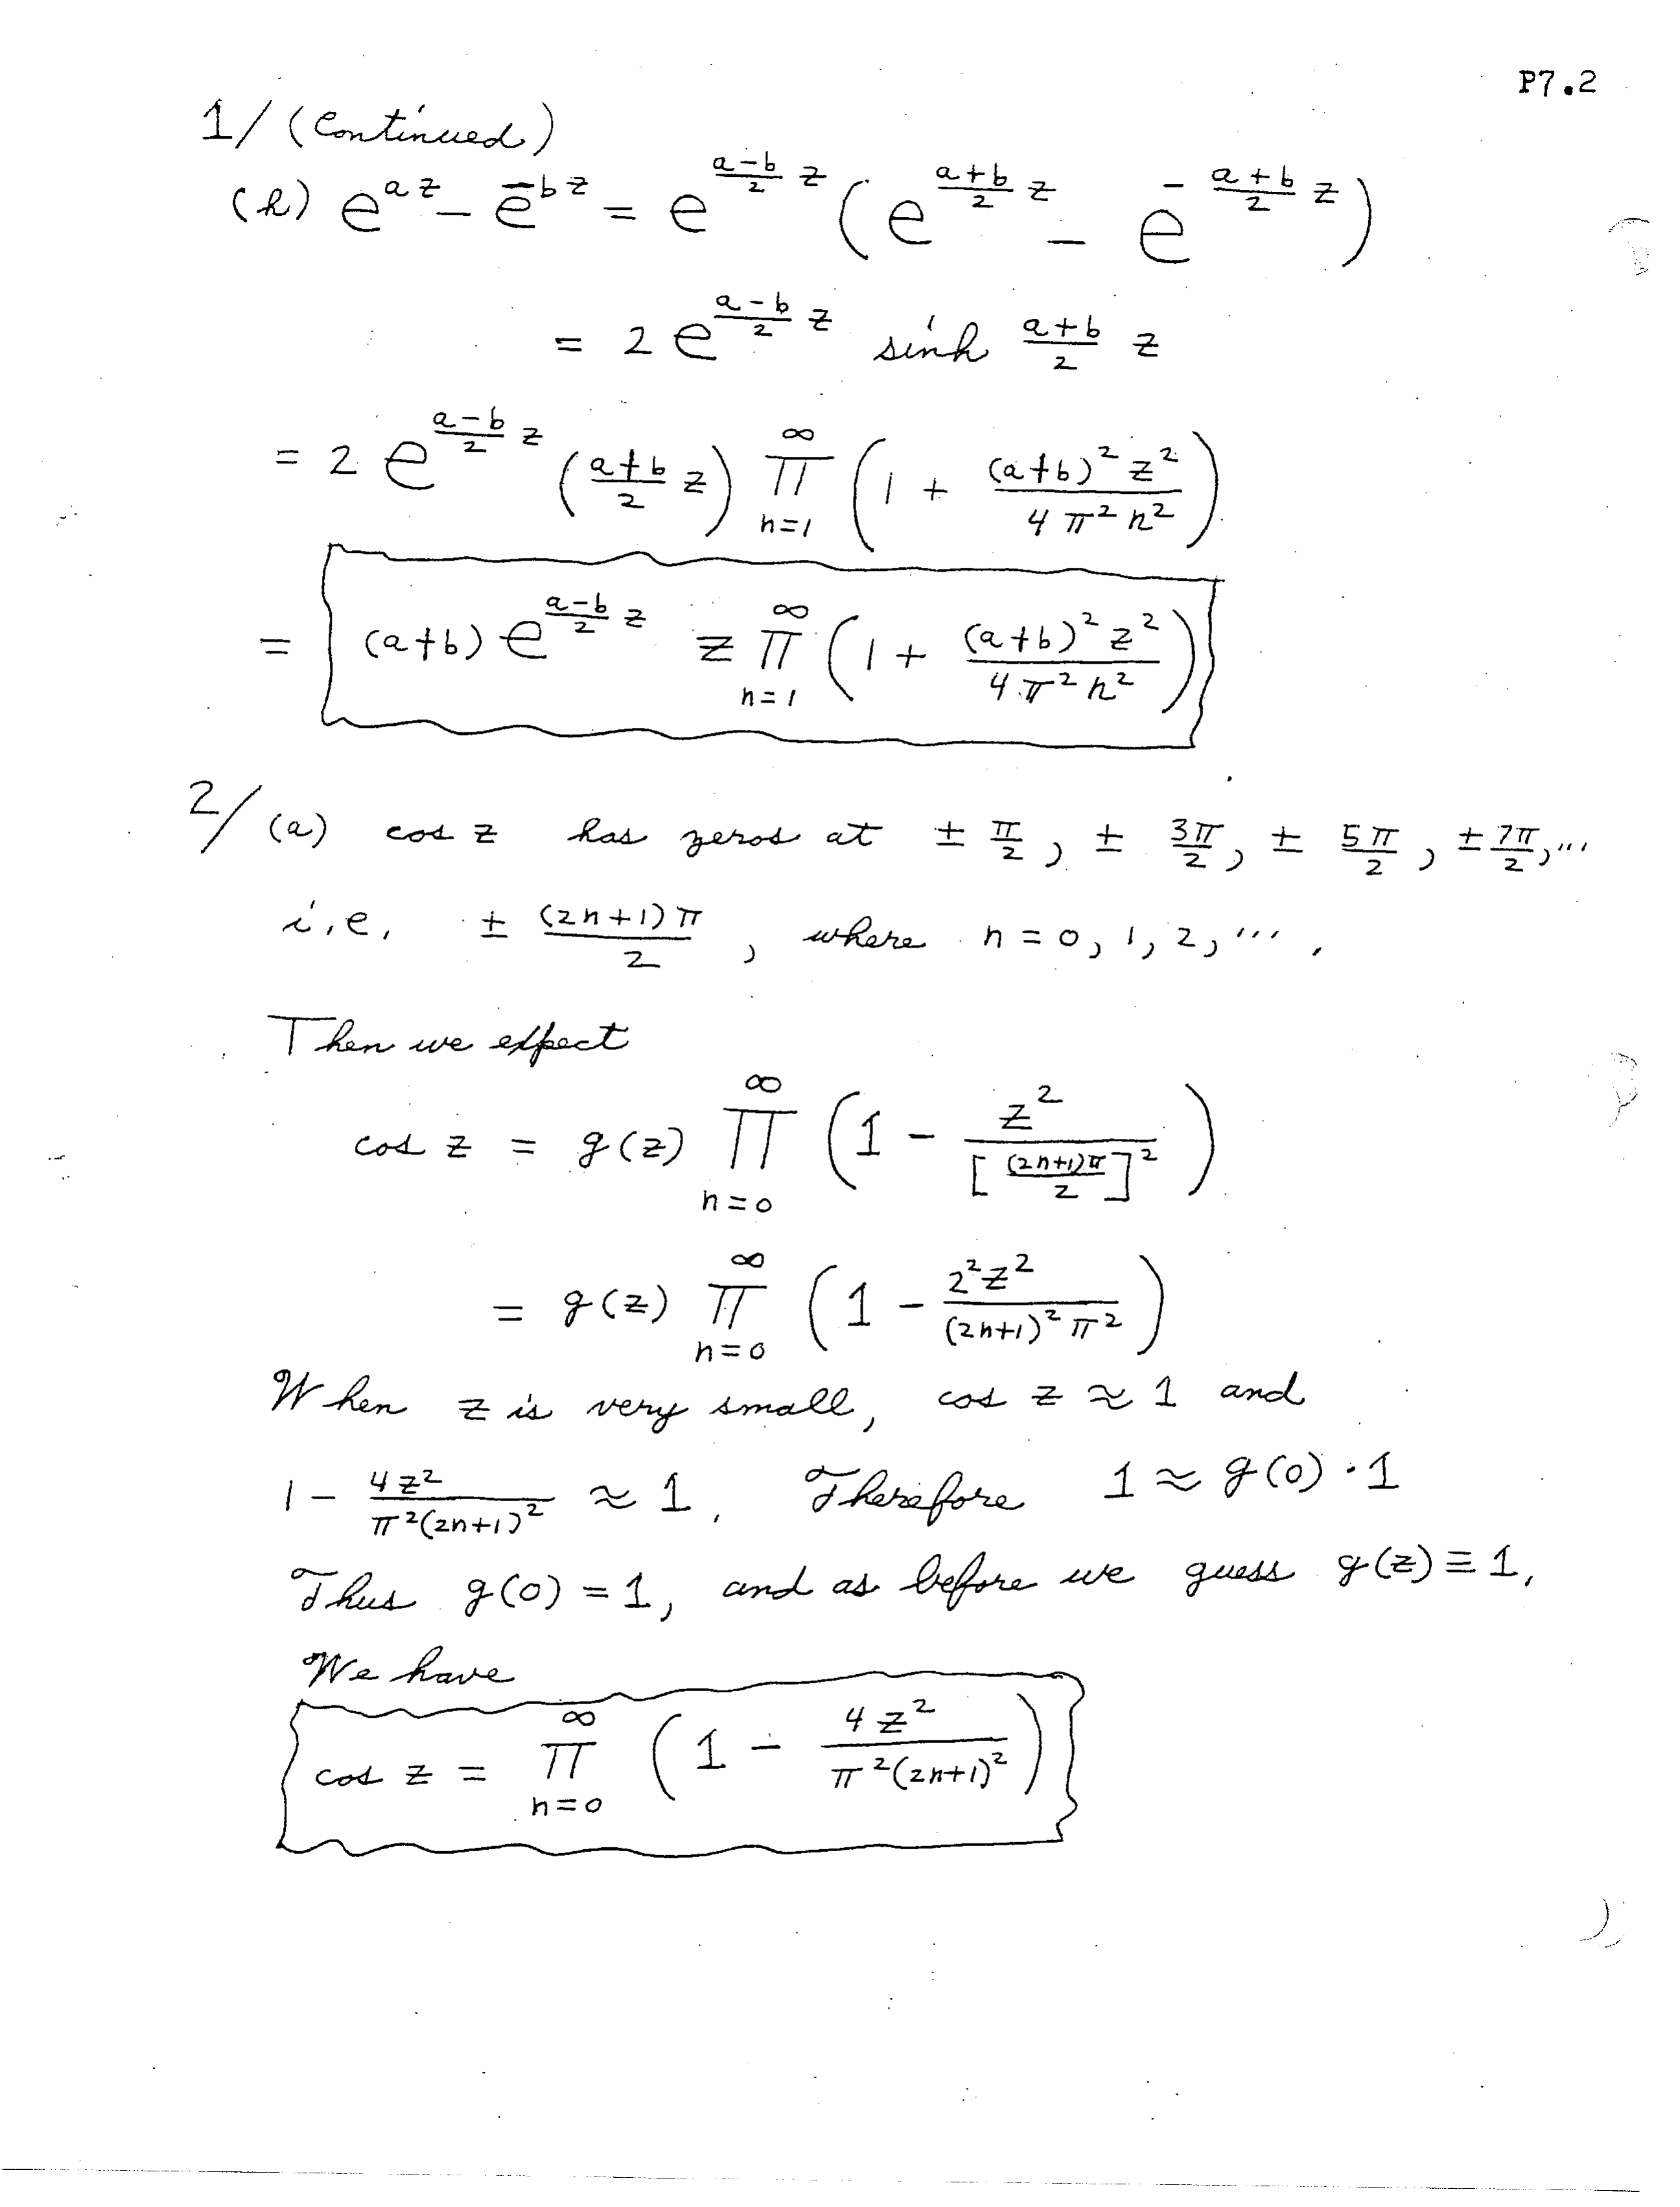 P7.2
1/ (Continued)
(h) e^{az} - e^{-bz} = e^{\frac{a-b}{2} z} ( e^{\frac{a+b}{2} z} - e^{-\frac{a+b}{2} z} )
= 2 e^{\frac{a-b}{2} z} sinh \frac{a+b}{2} z
= 2 e^{\frac{a-b}{2} z} ( \frac{a+b}{2} z ) \prod_{n=1}^{∞} ( 1 + \frac{(a+b)^2 z^2}{4 π^2 n^2} )
= (a+b) e^{\frac{a-b}{2} z} z \prod_{n=1}^{∞} ( 1 + \frac{(a+b)^2 z^2}{4 π^2 n^2} )
2/ (a) cos z has zeros at ± \frac{π}{2}, ± \frac{3π}{2}, ± \frac{5π}{2}, ± \frac{7π}{2}, ...
i.e. ± \frac{(2n+1)π}{2}, where n = 0, 1, 2, ... .
Then we expect
cos z = g(z) \prod_{n=0}^{∞} ( 1 - \frac{z^2}{[\frac{(2n+1)π}{2}]^2} )
= g(z) \prod_{n=0}^{∞} ( 1 - \frac{2^2 z^2}{(2n+1)^2 π^2} )
When z is very small, cos z ≈ 1 and
1 - \frac{4z^2}{π^2(2n+1)^2} ≈ 1. Therefore 1 ≈ g(0) · 1
Thus g(0) = 1, and as before we guess g(z) ≡ 1.
We have
cos z = \prod_{n=0}^{∞} ( 1 - \frac{4z^2}{π^2(2n+1)^2} )